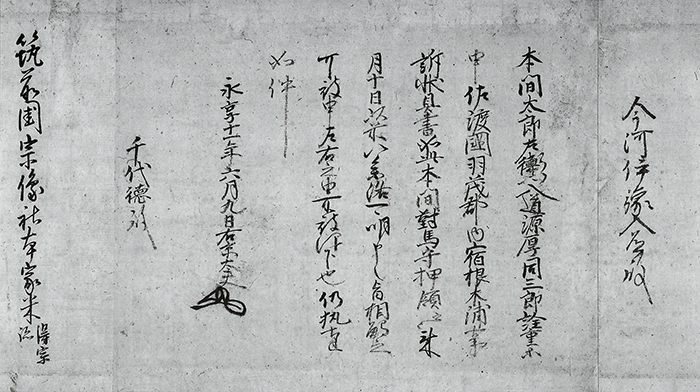 今河伊豫入道殿
本間太郎左衛門入道源厚同三郎詮重等
申佐渡國羽茂郡内宿根木浦事
訴状具書如此本間對馬守押領云々来
月十日以前企参洛可明申之旨相觸之
可被申左右之由可被仰下也仍執達
如件
永享十一年六月九日右京大夫
千代徳殿
筑前國宗像社本家米